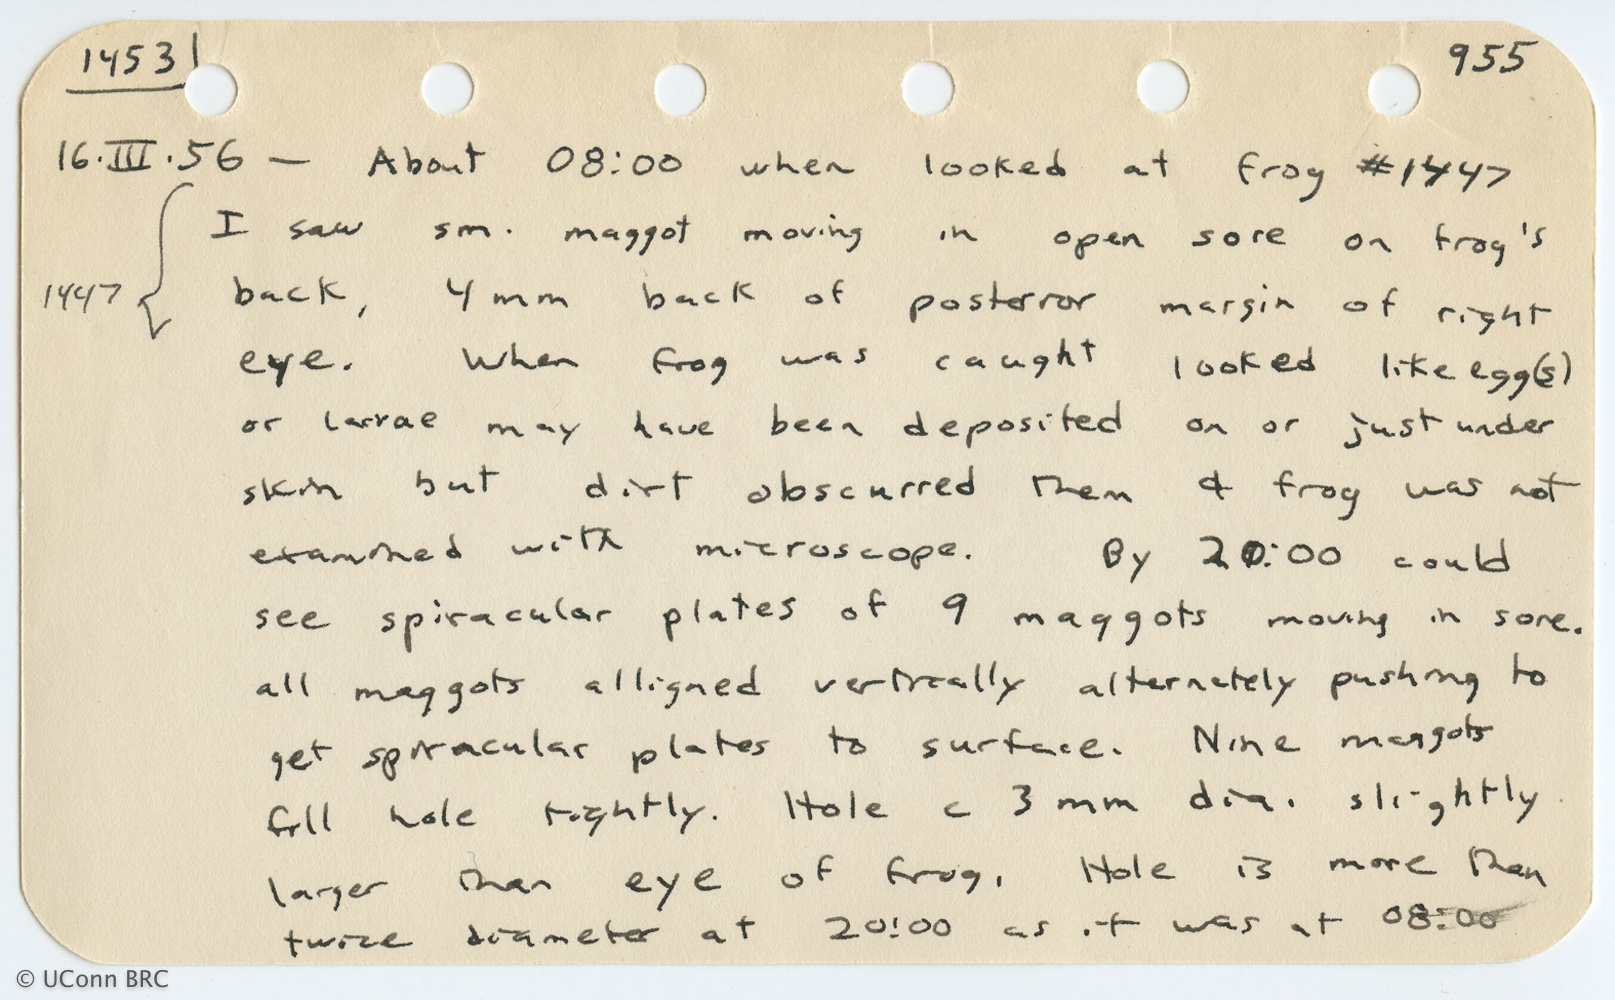 1453
955
16.III.56 — About 08:00 when looked at frog #1447
I saw sm. maggot moving in open sore on frog's
1447
back, 4 mm back of posterior margin of right
eye. When frog was caught looked like egg(s)
or larvae may have been deposited on or just under
skin but dirt obscurred them & frog was not
examined with microscope. By 20:00 could
see spiracular plates of 9 maggots moving in sore.
all maggots alligned vertically alternately pushing to
get spiracular plates to surface. Nine maggots
fill hole tightly. Hole c 3 mm dia. slightly
larger than eye of frog. Hole is more than
twice diameter at 20:00 as it was at 08:00
© UConn BRC